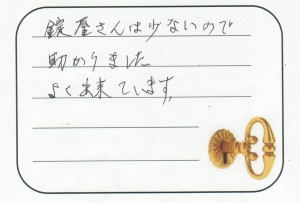 錠屋さんは少ないので
助かりました
よく出来ています。